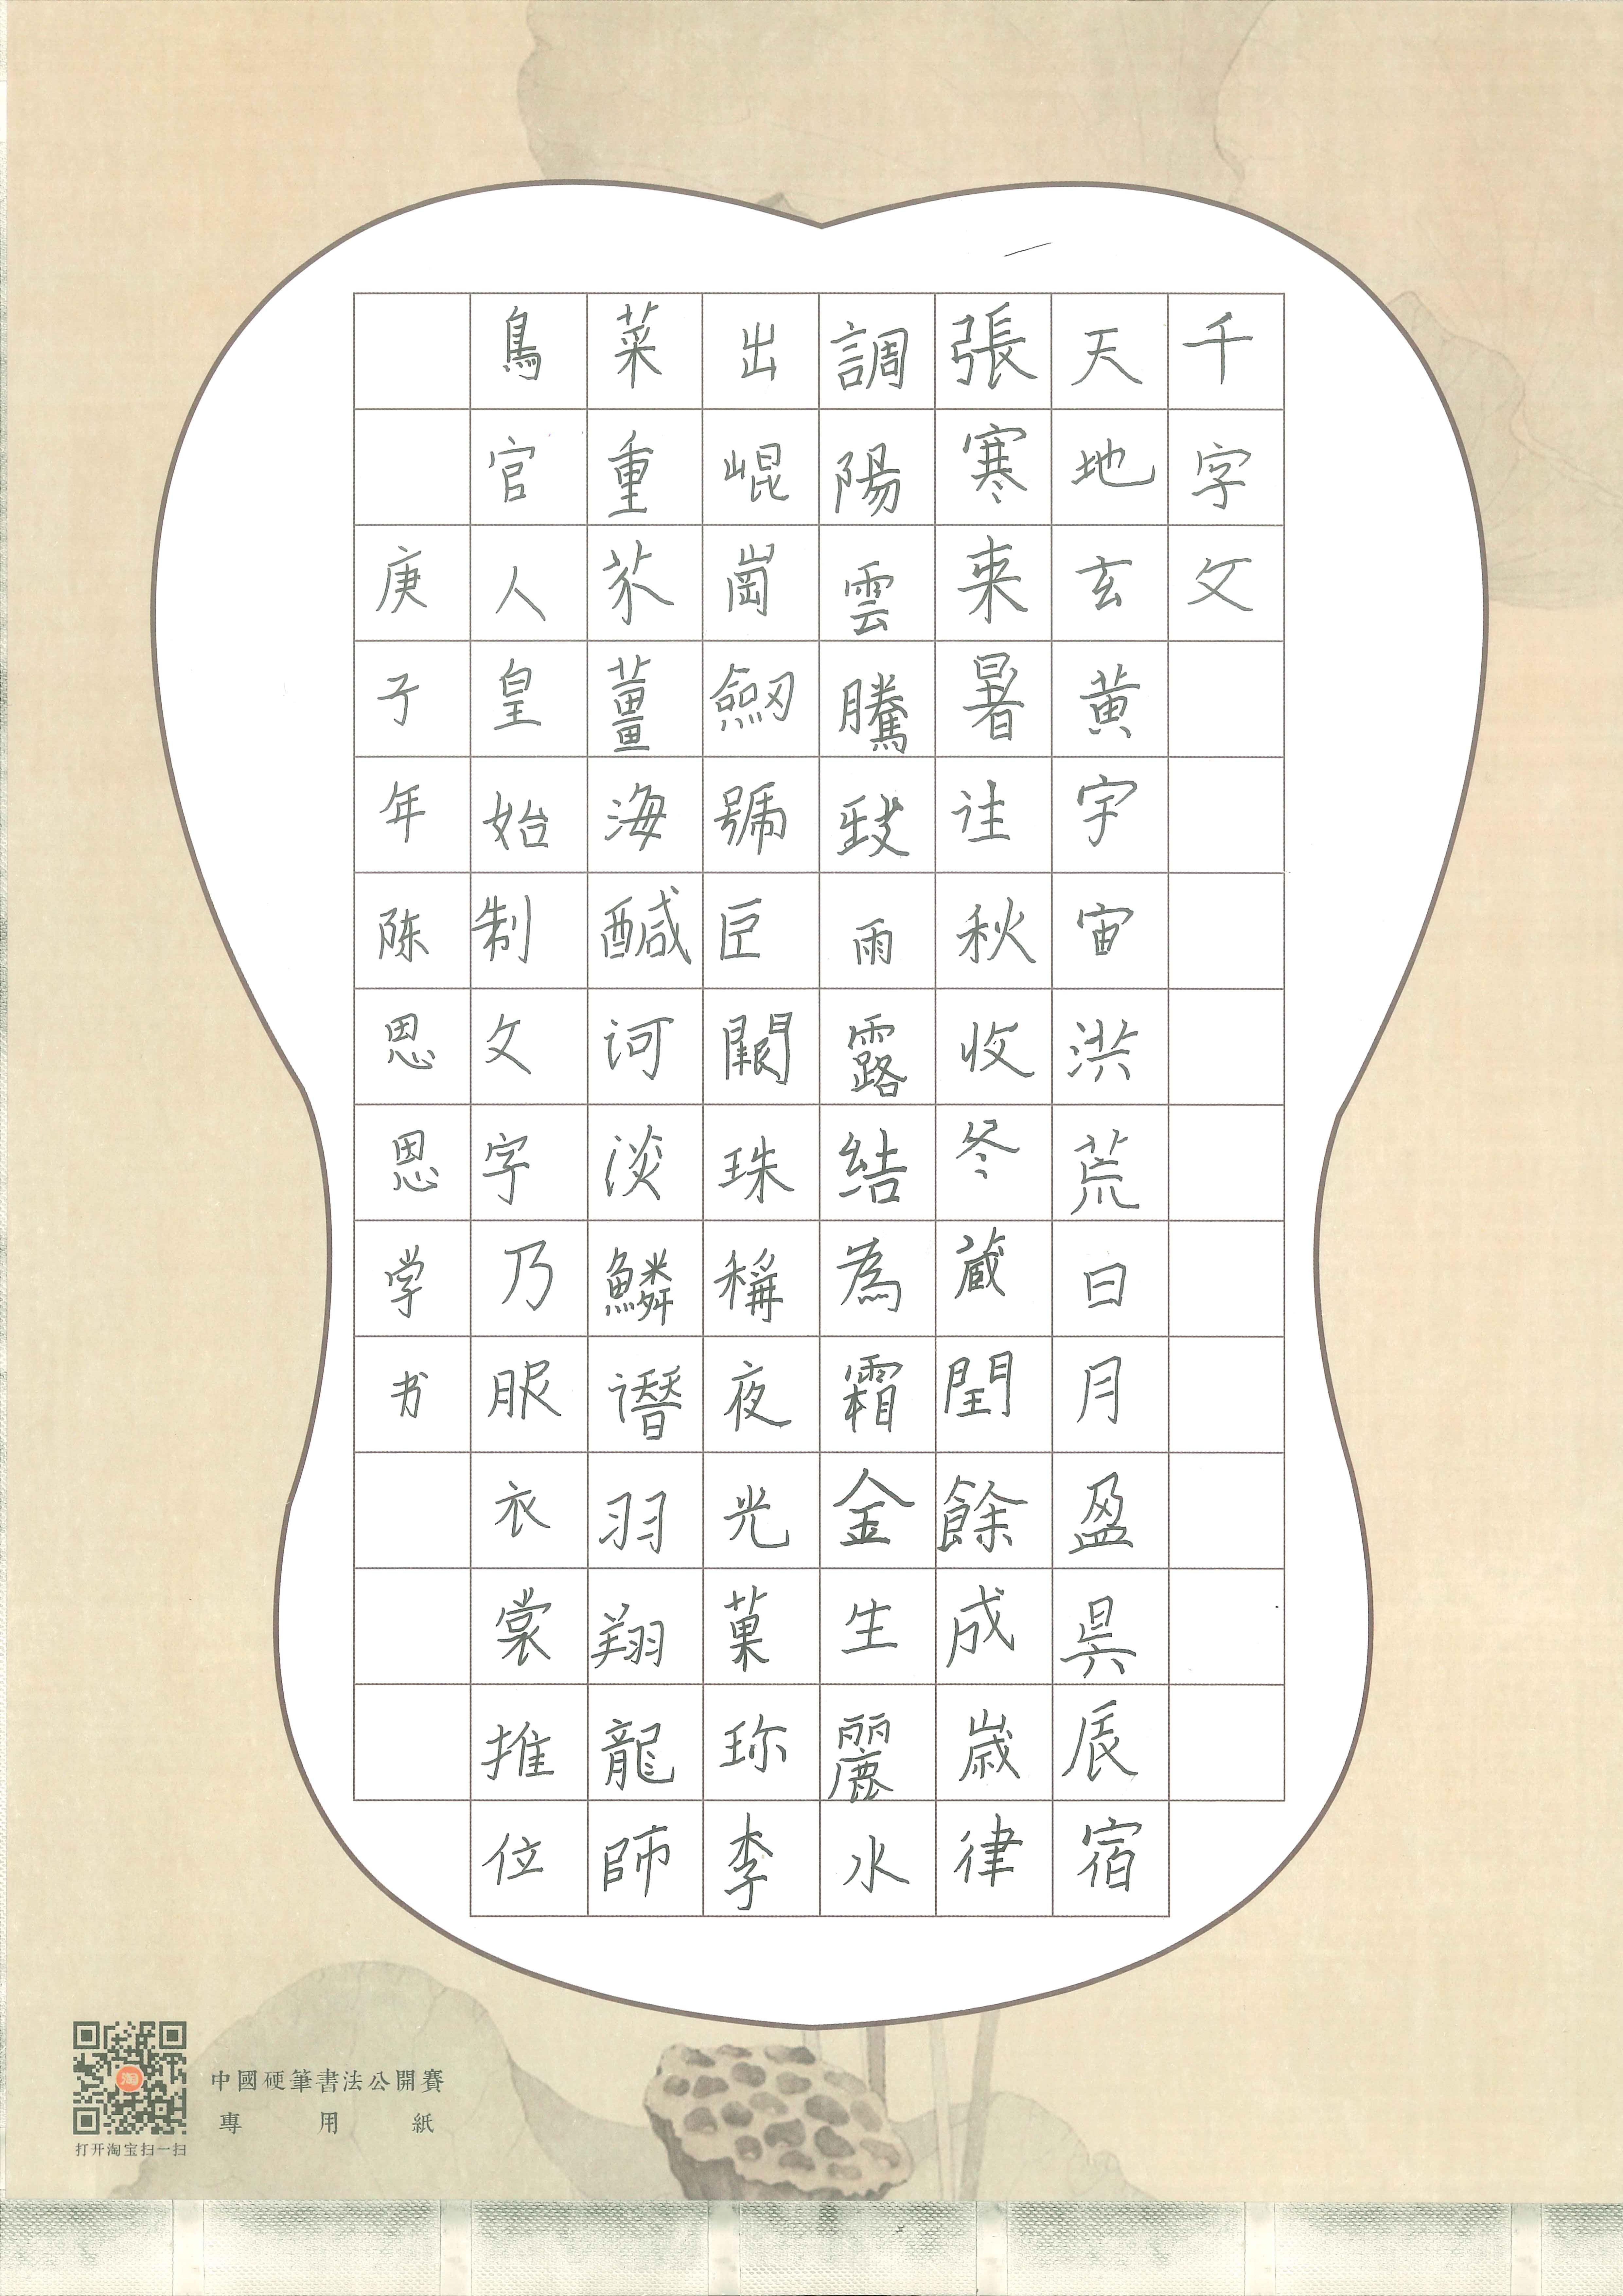 千字文
天地玄黄宇宙洪荒日月盈昃辰宿
張寒来暑往秋收冬藏閏餘成歲律
調陽雲騰致雨露結為霜金生麗水
出崐崗劔號巨闕珠稱夜光菓珎李
菜重芥薑海醎河淡鱗潛羽翔龍師
鳥官人皇始制文字乃服衣裳推位
庚子年陈恩恩学书
中國硬筆書法公開賽
專用紙
打开淘宝扫一扫